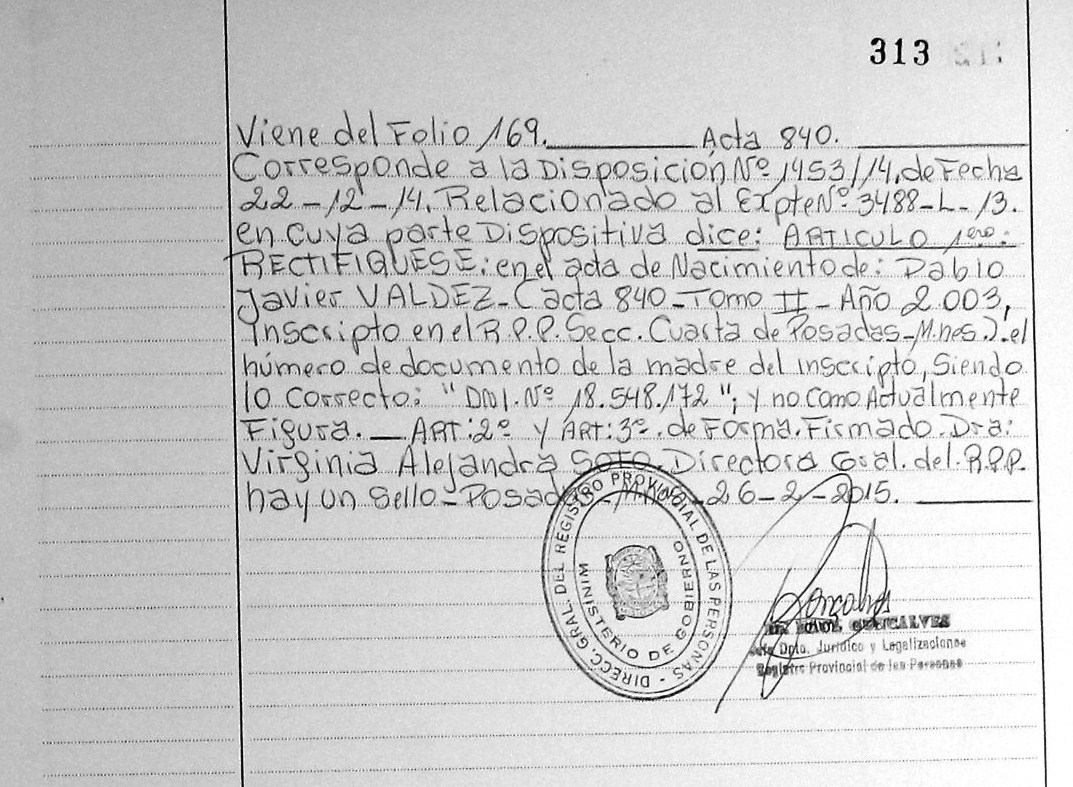 313
Viene del Folio 169. Acta 840.
Corresponde a la Disposición Nº 1453/14, de Fecha
22-12-14. Relacionado al Expte Nº 3488-L-13.
en cuya parte Dispositiva dice: ARTICULO 1ero:
RECTIFIQUESE: en el acta de Nacimiento de: Pablo
Javier VALDEZ-(acta 840-Tomo II-Año 2.003,
Inscripto en el R.P.P. Secc. Cuarta de Posadas-Mnes.). el
número de documento de la madre del inscripto, Siendo
lo Correcto: "DNI. Nº 18.548.172"; y no Como Actualmente
Figura.— ART:2º y ART:3º. de Forma. Firmado. Dra:
Virginia Alejandra SOTO. Directora Gral. del. R.P.P.
hay un Sello-Posadas-Mnes-26-2-2015.
DIRECC. GRAL. DEL REGISTRO PROVINCIAL DE LAS PERSONAS -
MINISTERIO DE GOBIERNO
Goncalves
GONCALVES
Dpto. Jurídico y Legalizaciones
Registro Provincial de las Personas